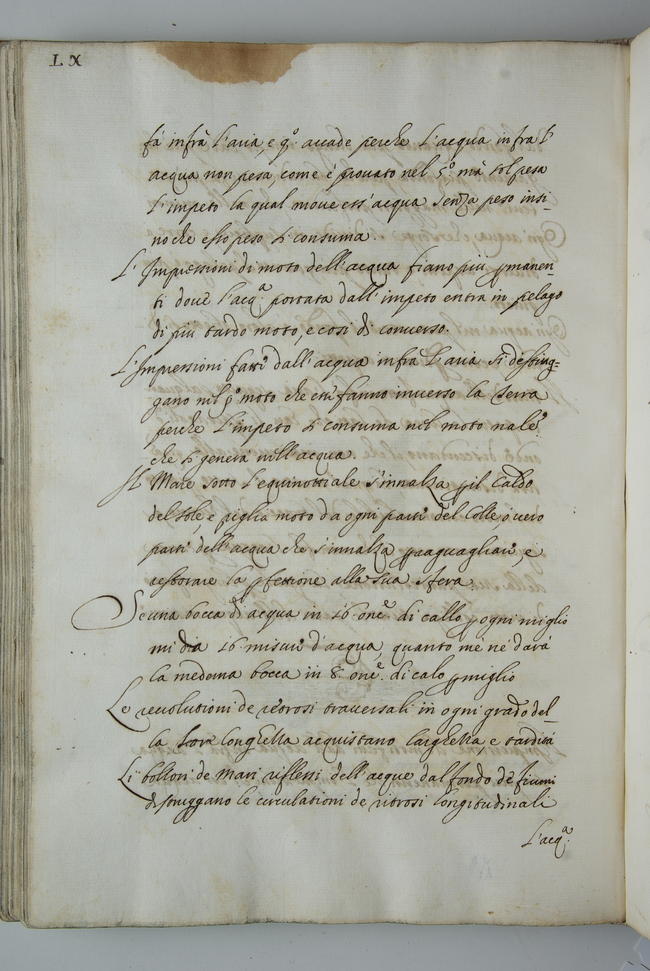 LX
fà infrà l'aria, e q.º accade perche l'acqua infra l'
acqua non pesa, come è provato nel 5.º mà sol pesa
l'impeto la qual move ess'acqua senza peso insi-
no che esso peso si consuma.
L'Impressioni di moto dell'acqua fiano più pmanen-
ti dove l'acq.ª portata dall'impeto entra in pelago
di più tardo moto, e così di converso.
L'Impressioni fatte dall'acqua infrà l'aria si destrug-
gano nel p.º moto che esse fanno inverso la terra
perche l'impeto si consuma nel moto nale
che si genera nell'acqua.
Il Mare sotto l'equinottiale s'innalza p il caldo
del sole, e piglia moto da ogni parte del Colle, ò vero
parte dell'acqua che s'innalza p raguagliare, e
restorare la pfettione alla sua sfera
Se una bocca di acqua in 16 onc.e di callo p ogni miglio
mi dia 16 misure d'acqua, quanto me ne darà
la medema bocca in 8. onc.e di calo p miglio
Le revolutioni de retrosi traversali in ogni grado del-
la lor longhezza acquistano larghezza, e tardità
Li bollori de Mari riflessi dell'acque dal fondo de fiumi
distruggano le circulationi de ritrosi longitudinali
L'acq.ª